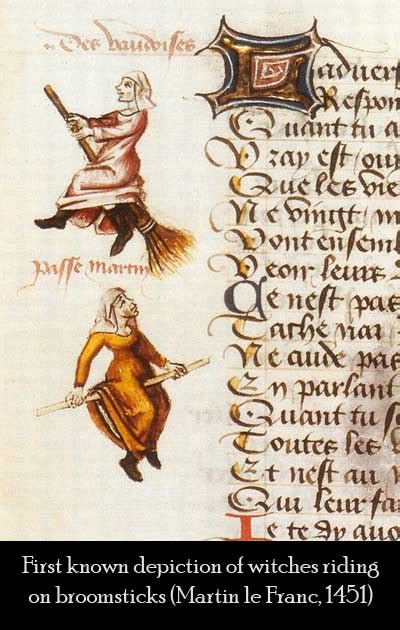 Des vaudoises
passe martin
Laduer
Respon
Quant tu a
Vray est ou
Que les vie
Ne vingt m
Vont ensem
Veoir leurs
Ce nest pas
Ne cuide pas
En parlant
Quant tu
Toutes les
Et nest au
Qui leur fa
Je te dy auo
First known depiction of witches riding
on broomsticks (Martin le Franc, 1451)